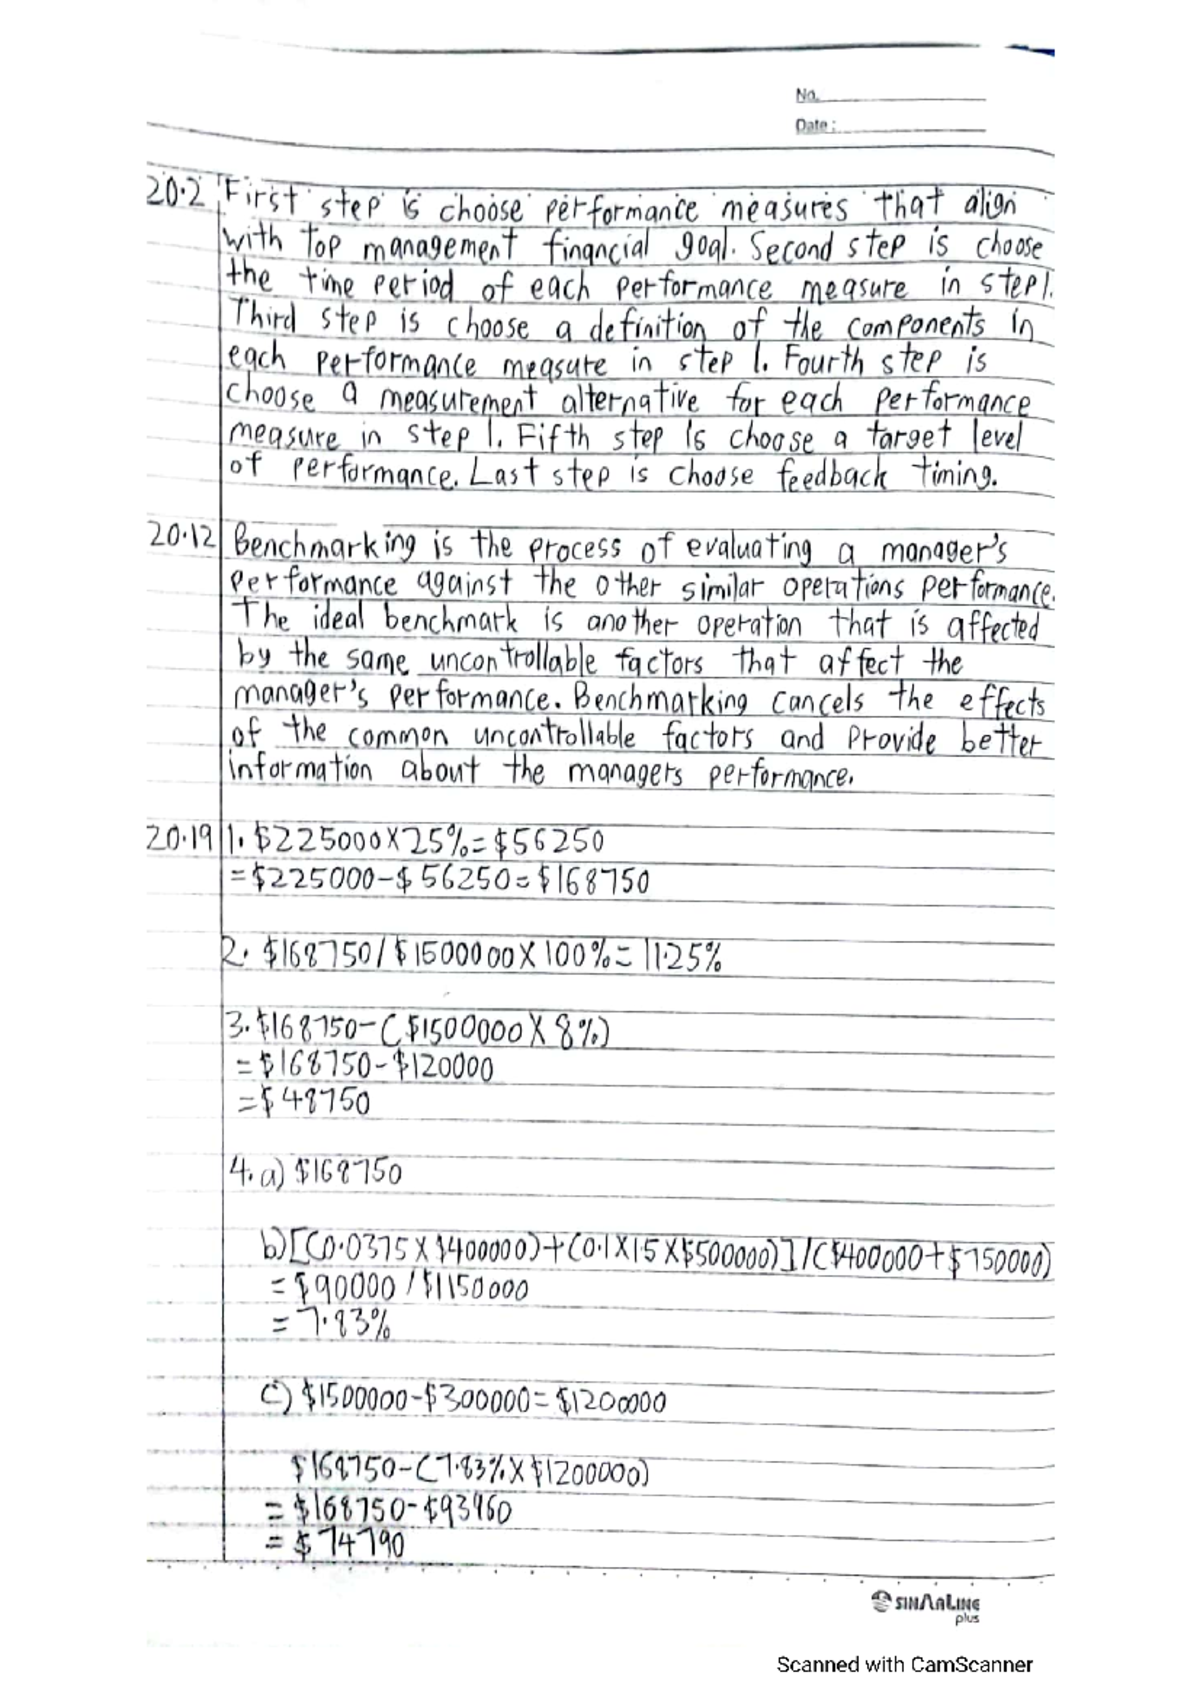 No.
Date :
20.2 First step is choose performance measures that align
with top management financial goal. Second step is choose
the time period of each performance measure in step 1.
Third step is choose a definition of the components in
each performance measure in step 1. Fourth step is
choose a measurement alternative for each performance
measure in step 1. Fifth step is choose a target level
of performance. Last step is choose feedback timing.
20.12 Benchmarking is the process of evaluating a manager's
performance against the other similar operations performance.
The ideal benchmark is another operation that is affected
by the same uncontrollable factors that affect the
manager's performance. Benchmarking cancels the effects
of the common uncontrollable factors and provide better
information about the managers performance.
20.19 1. $225000X25%=$56250
=$225000-$56250=$168750
2. $168750/$1500000X100%=11.25%
3. $168750-($1500000X8%)
=$168750-$120000
=$48750
4. a) $168750
b) [(0.0375X$400000)+(0.1X1.5X$500000)]/($400000+$750000)
=$90000/$1150000
=7.83%
c) $1500000-$300000=$1200000
$168750-(7.83%X$1200000)
=$168750-$93960
=$74790
SINARLINE
plus
Scanned with CamScanner